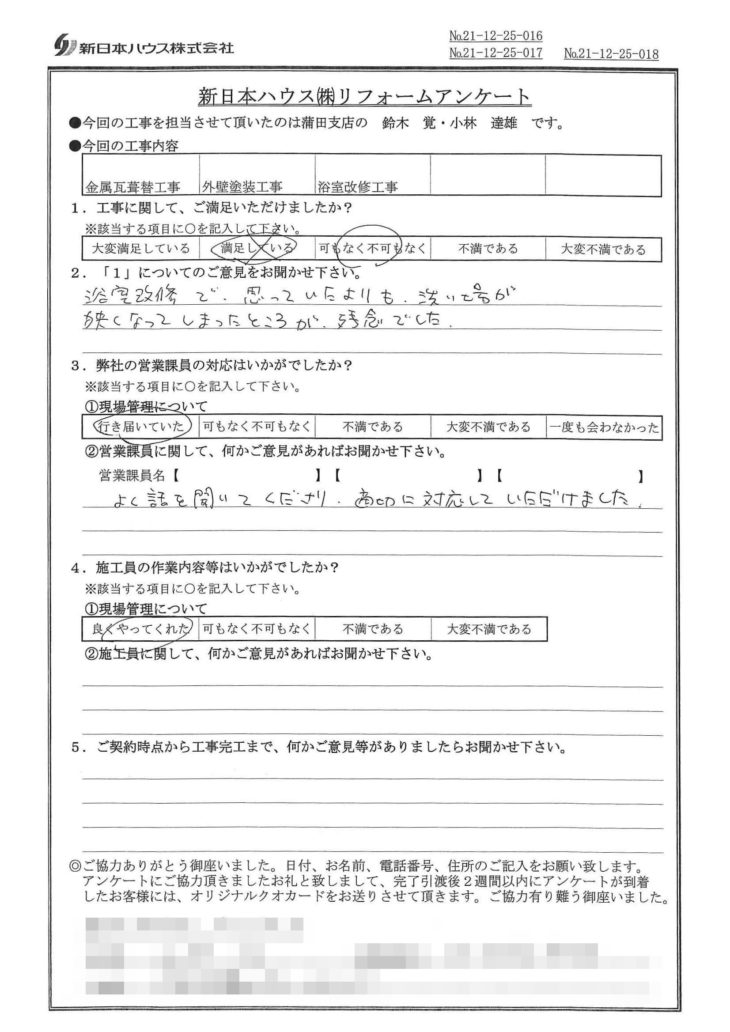 新日本ハウス株式会社
№21-12-25-016
№21-12-25-017 №21-12-25-018
新日本ハウス㈱リフォームアンケート
●今回の工事を担当させて頂いたのは蒲田支店の 鈴木 覚・小林 達雄 です。
●今回の工事内容
金属瓦葺替工事 外壁塗装工事 浴室改修工事
1．工事に関して、ご満足いただけましたか？
※該当する項目に○を記入して下さい。
大変満足している 満足している 可もなく不可もなく 不満である 大変不満である
2．「1」についてのご意見をお聞かせ下さい。
浴室改修で、思っていたよりも、洗い場が
狭くなってしまったところが、残念でした。
3．弊社の営業課員の対応はいかがでしたか？
※該当する項目に○を記入して下さい。
①現場管理について
行き届いていた 可もなく不可もなく 不満である 大変不満である 一度も会わなかった
②営業課員に関して、何かご意見があればお聞かせ下さい。
営業課員名【 】【 】【 】
よく話を聞いてくださり、適切に対応していただけました。
4．施工員の作業内容等はいかがでしたか？
※該当する項目に○を記入して下さい。
①現場管理について
良くやってくれた 可もなく不可もなく 不満である 大変不満である
②施工員に関して、何かご意見があればお聞かせ下さい。
5．ご契約時点から工事完工まで、何かご意見等がありましたらお聞かせ下さい。
◎ご協力ありがとう御座いました。日付、お名前、電話番号、住所のご記入をお願い致します。
アンケートにご協力頂きましたお礼と致しまして、完了引渡後２週間以内にアンケートが到着
したお客様には、オリジナルクオカードをお送りさせて頂きます。ご協力有り難う御座いました。